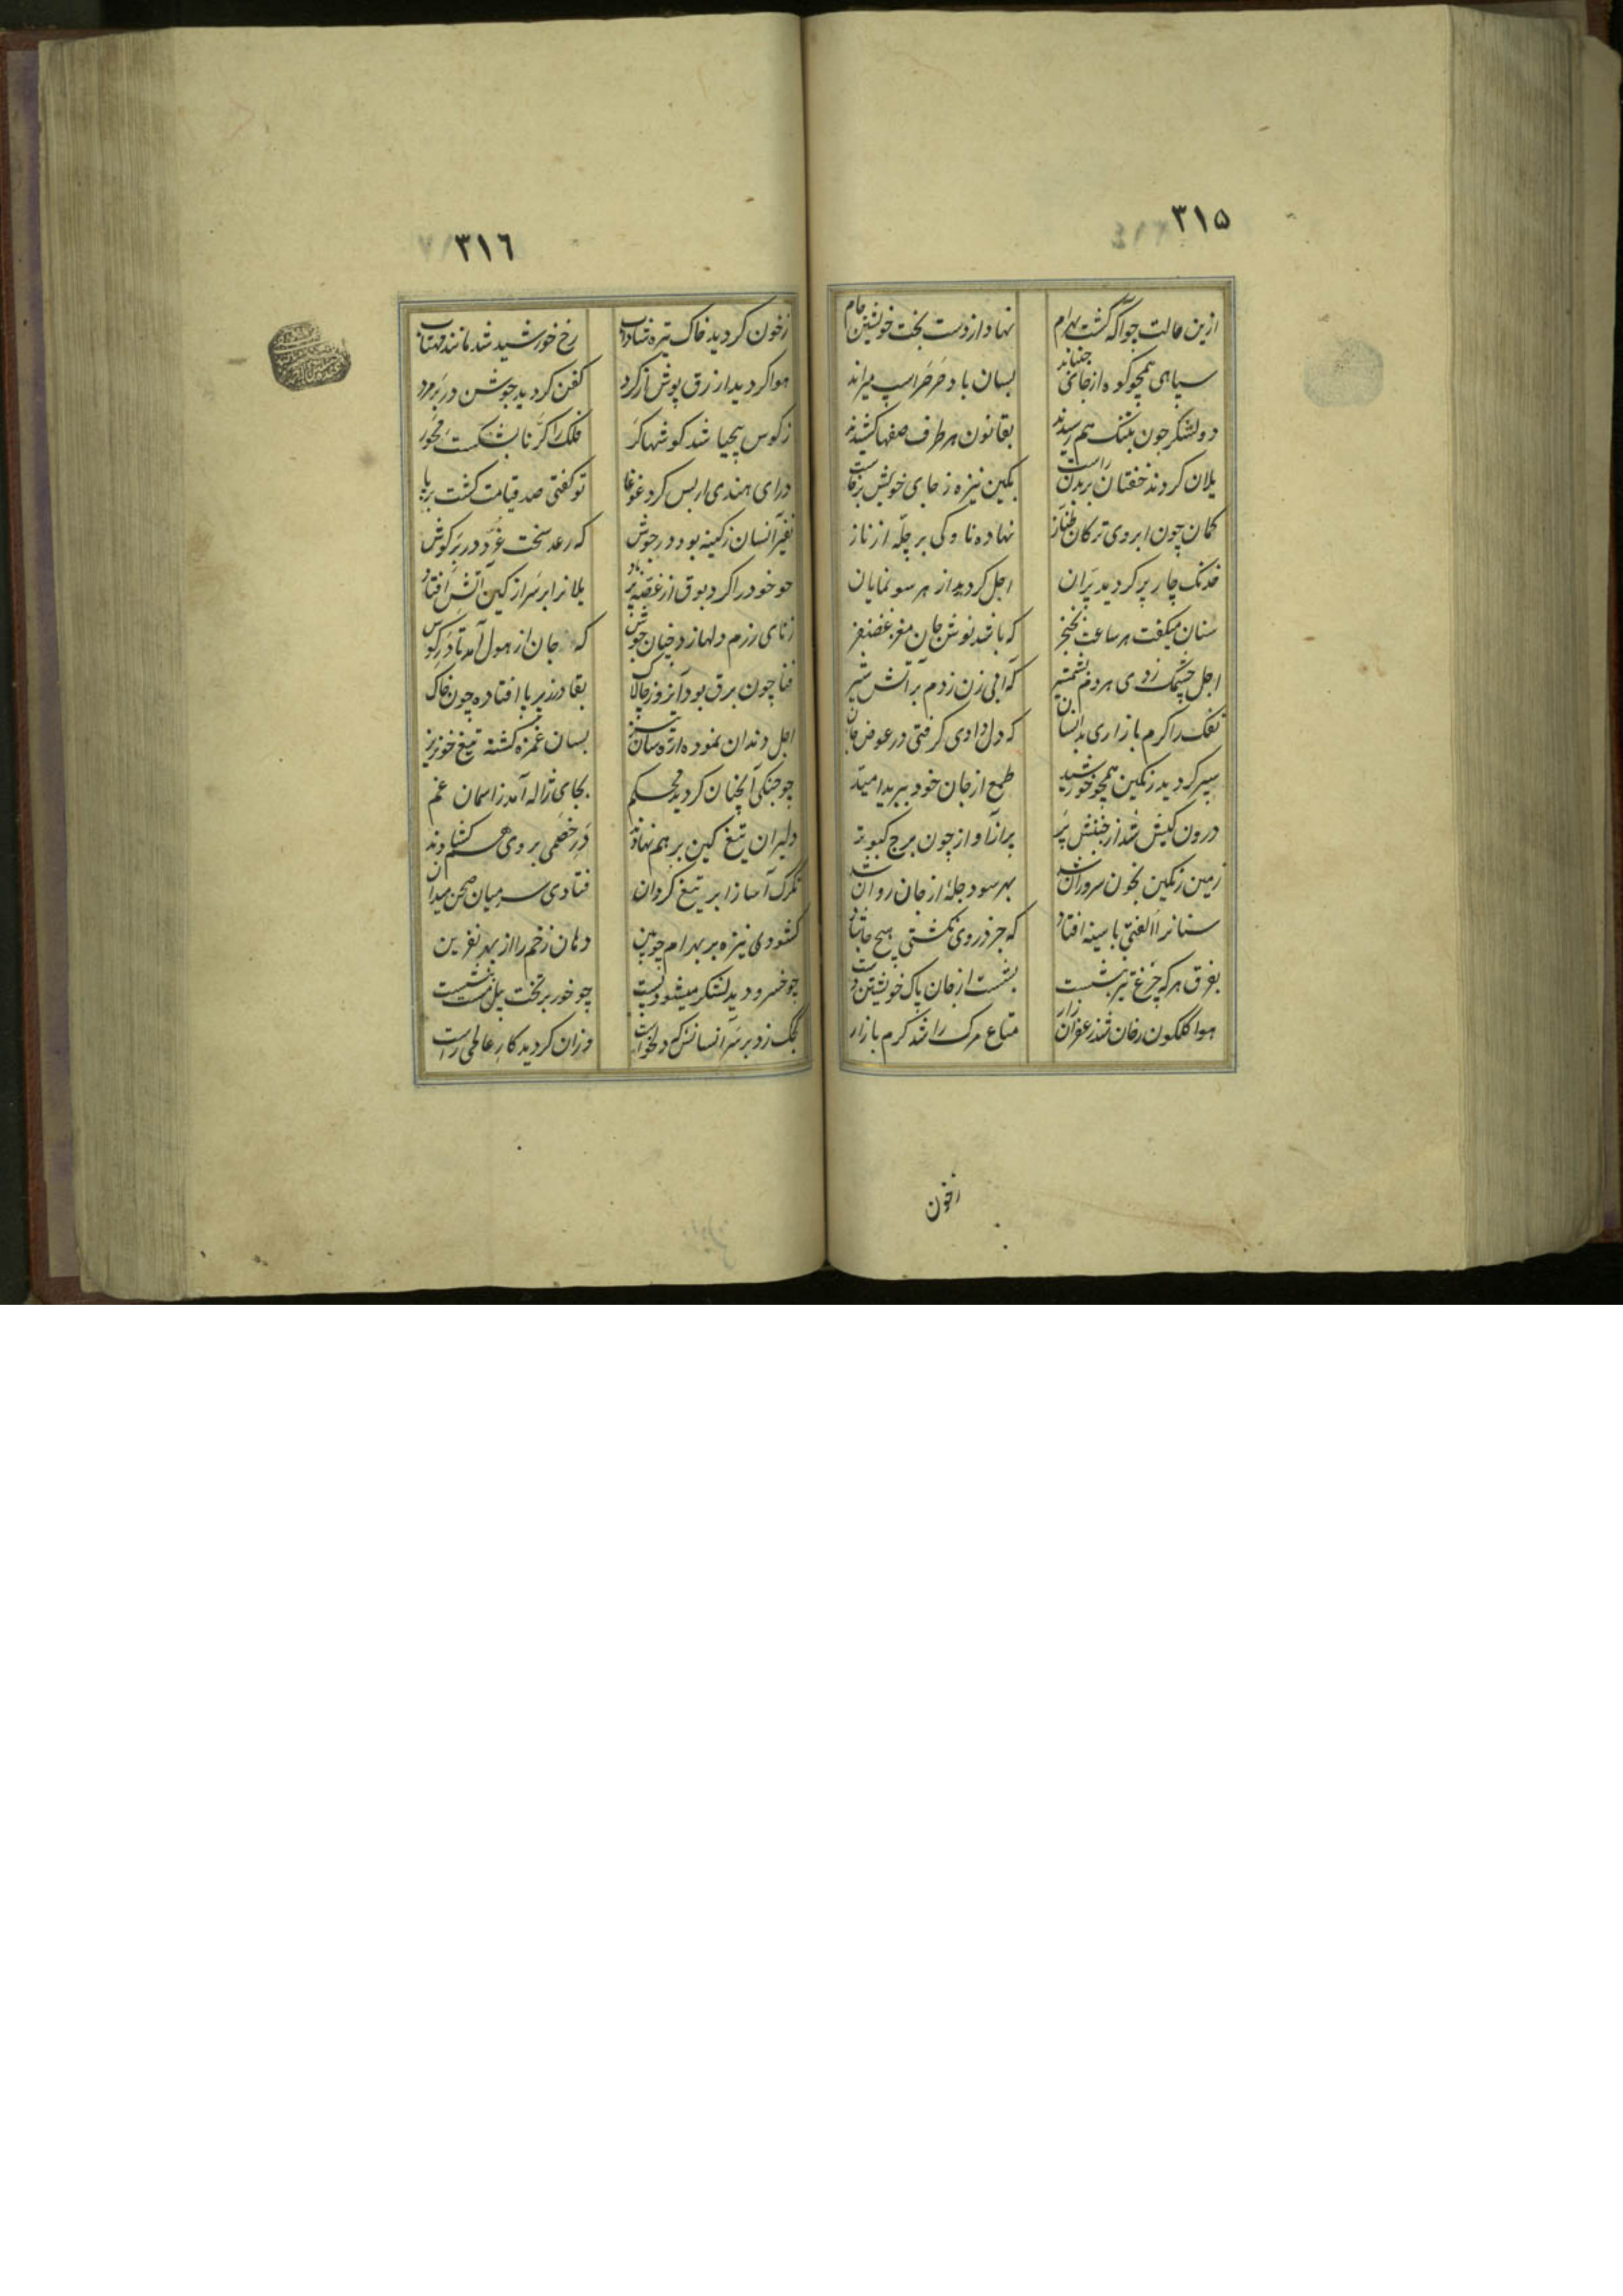 ۳۱۵
ازین حالت چو آگه گشت بهرام نهاد از دست بخت خویشتن جام
سپاهی همچو کوه از جای جنباند بسان باد صرصر اسپ میراند
دو لشکر چون بتنک هم رسیدند بقانون هر طرف صفها کشیدند
یلان کردند خفتان بر بدن راست بکین نیزه ز جای خویش برخاست
کمان چون ابروی ترکان طناز نهاده ناوکی بر چله از ناز
خدنک چار پر کردید پران اجل کردید از هر سو نمایان
سنان میکفت هر ساعت بخنجر که باشد نوش جان مغز غضنفر
اجل چشمک زدی هر دم بشمشیر که آبی زن زدم بر آتش شیر
تفک را کرم بازاری بدانسان که دل دادی کرفتی در عوض جان
سپر کردید رنکین همچو خورشید طمع از جان خود ببرید امید
درون کیش شد از جنبش پر پر از آواز چون برج کبوتر
زمین رنکین بخون سروران شد بهر سو دجلهٔ از جان روان شد
سنانرا الفتی با سینه افتاد که جز در وی نکشتی هیچ جا شاد
بفرق هر که چرغ تیر بنشست بشست از جان پاک خویشتن دست
هوا کلکون رخان شد زعفران زار متاع مرک را شد کرم بازار
زخون
۳۱۶
زخون کردید خاک تیره شاداب رخ خورشید شد مانند مهتاب
هوا کردید ازرق پوش از کرد کفن کردید جوشن در بر مرد
ز کوس پیچیا شد کوشها کر فلک را کرنا بشکست محور
درای هندی از بس کرد غوغا تو کفتی صد قیامت کشت برپا
نفیر آنسان ز کینه بود در جوش که رعد سخت غرد در بر کوش
چو خود را کرد بوق از غصه پر باد یلانرا بر سر از کین آتش افتاد
ز نای رزم دلها زد چنان جوش که جان از هول آمد تا در کوس
فنا چون برق بود آنروز چالاک بقا در زیر پا افتاده چون خاک
اجل دندان نموده اره سان تیز بسان غمزه کشته تیغ خونریز
چو جنکی آنچنان کردید محکم بجای ژاله آمد ز اسمان غم
دلیران تیغ کین بر هم نهادند در خصمی بروی هم کشادند
تکرک آسا ز ابر تیغ کردان فتادی سر میان صحن میدان
کشودی نیزه بر بهرام چوبین دهان زخم را از بهر نفرین
چو خسرو دید لشکر میشود پست چو خور بر تخت پیل مست بنشست
کجک زد بر سر آنسانش که دلخواست وزان کردید کار عالمی راست